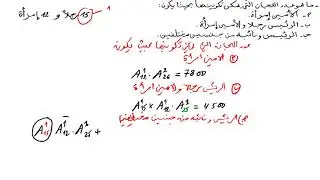 ما هو عدد اللجان التي يمكن تكوينها بحيث يكون:
15 رجلا و 12 إمرأة
الأمين إمرأة.
الرئيس رجلا و الأمين إمرأة.
الرئيس و نائبه من جنسين مختلفين.
عدد اللجان التي يمكن تكوينها بحيث يكون
الأمين امرأة
A¹₁₂ · A²₂₆ = 7800
الرئيس رجل والأمين امرأة
A¹₁₅ × A¹₁₂ · A¹₂₅ = 4500
الرئيس ونائبه من جنسين مختلفين
A¹₁₅ A¹₁₂ · A¹₂₅ +